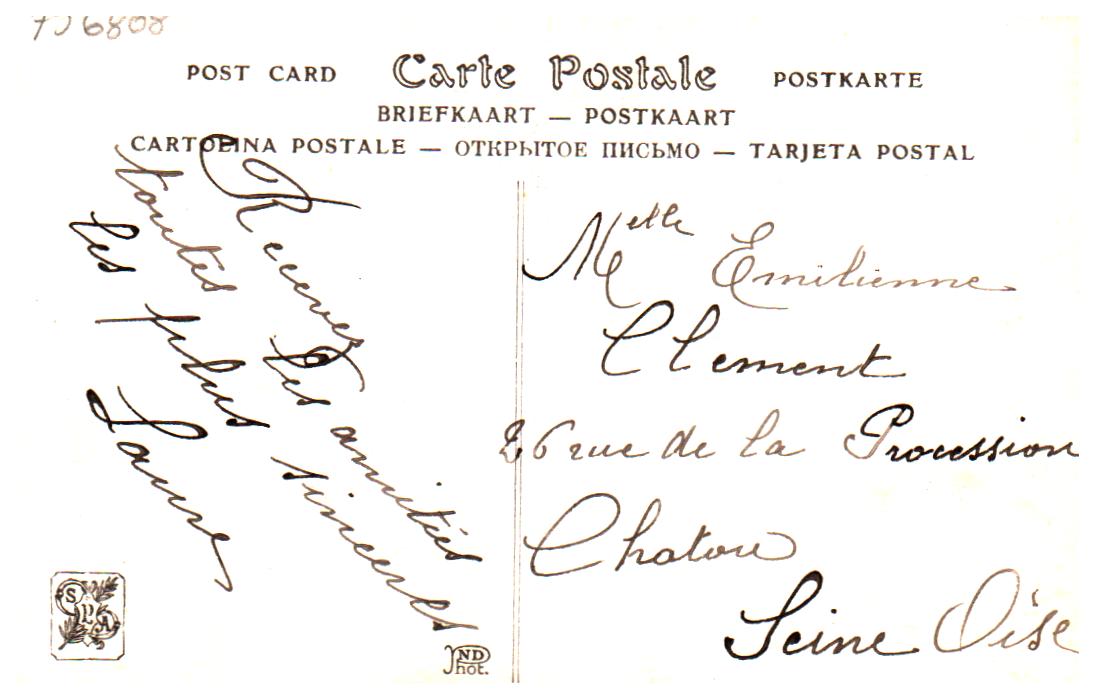 6808
POST CARD Carte Postale POSTKARTE
BRIEFKAART — POSTKAART
CARTOLINA POSTALE — ОТКРЫТОЕ ПИСЬМО — TARJETA POSTAL
Recevez les amitiés
toutes les plus sincères
Laure
Melle Emilienne
Clement
26 rue de la Procession
Chatou
Seine Oise
SPA
ND
Phot.